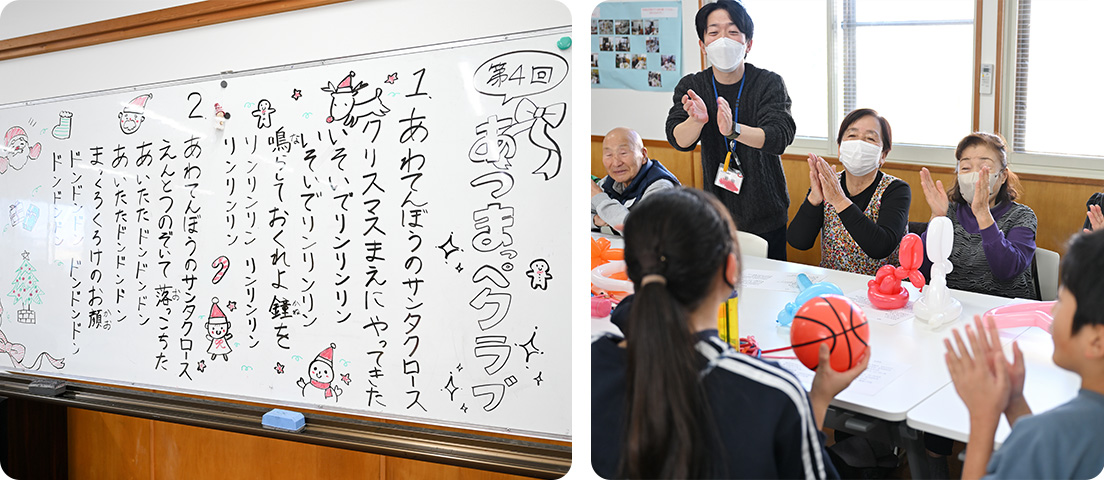 第4回
あつまっぺクラブ
1、あわてんぼうのサンタクロース
クリスマスまえにやってきた
いそいでリンリンリン
いそいでリンリンリン
な かね
鳴らしておくれよ鐘を
リンリンリン リンリンリン
リンリンリン
2、あわてんぼうのサンタクロース
お
えんとつのぞいて落っこちた
あいたたドンドンドン
あいたたドンドンドン
かお
まっくろくろけのお顔
ドンドンドン ドンドンドン
ドンドンドン